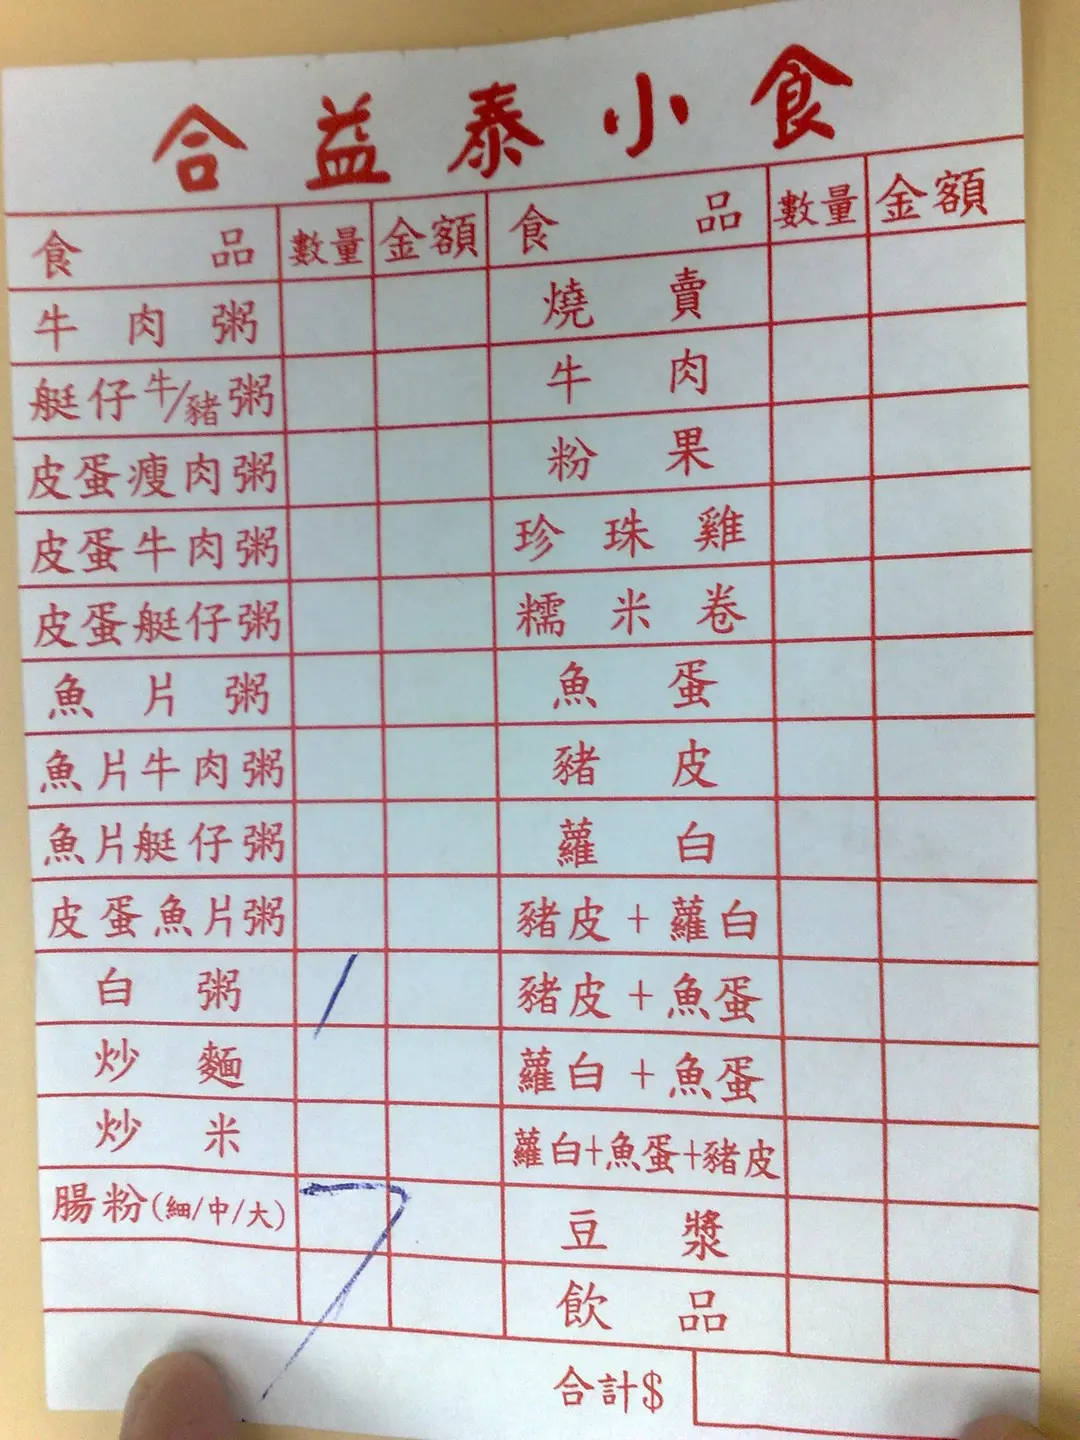 合益泰小食
食品 數量 金額 食品 數量 金額
牛肉粥 燒賣
艇仔牛/豬粥 牛肉
皮蛋瘦肉粥 粉果
皮蛋牛肉粥 珍珠雞
皮蛋艇仔粥 糯米卷
魚片粥 魚蛋
魚片牛肉粥 豬皮
魚片艇仔粥 蘿白
皮蛋魚片粥 豬皮+蘿白
白粥 / 豬皮+魚蛋
炒麵 蘿白+魚蛋
炒米 蘿白+魚蛋+豬皮
腸粉(細/中/大) 7 豆漿
飲品
合計$